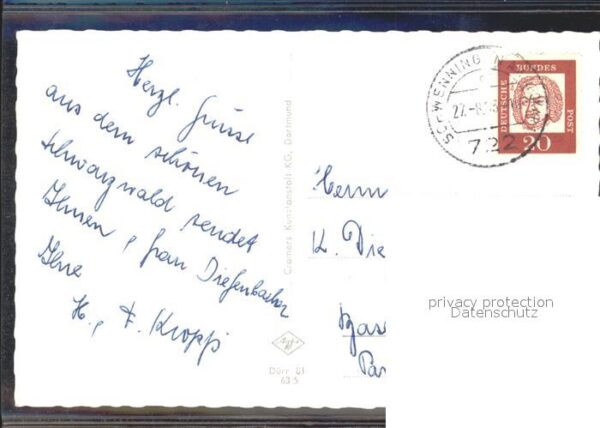 Herzl. Grüsse
aus dem schönen
Schwarzwald sendet
Ihnen, Frau Diefenbacher
Ihre
H., F. Kropp
Cramers Kunstanstalt KG, Dortmund
Dürr 81
63 S
SCHWENNING
7 22
DEUTSCHE
BUNDES
POST
20
Herrn
K. Die
privacy protection
Datenschutz